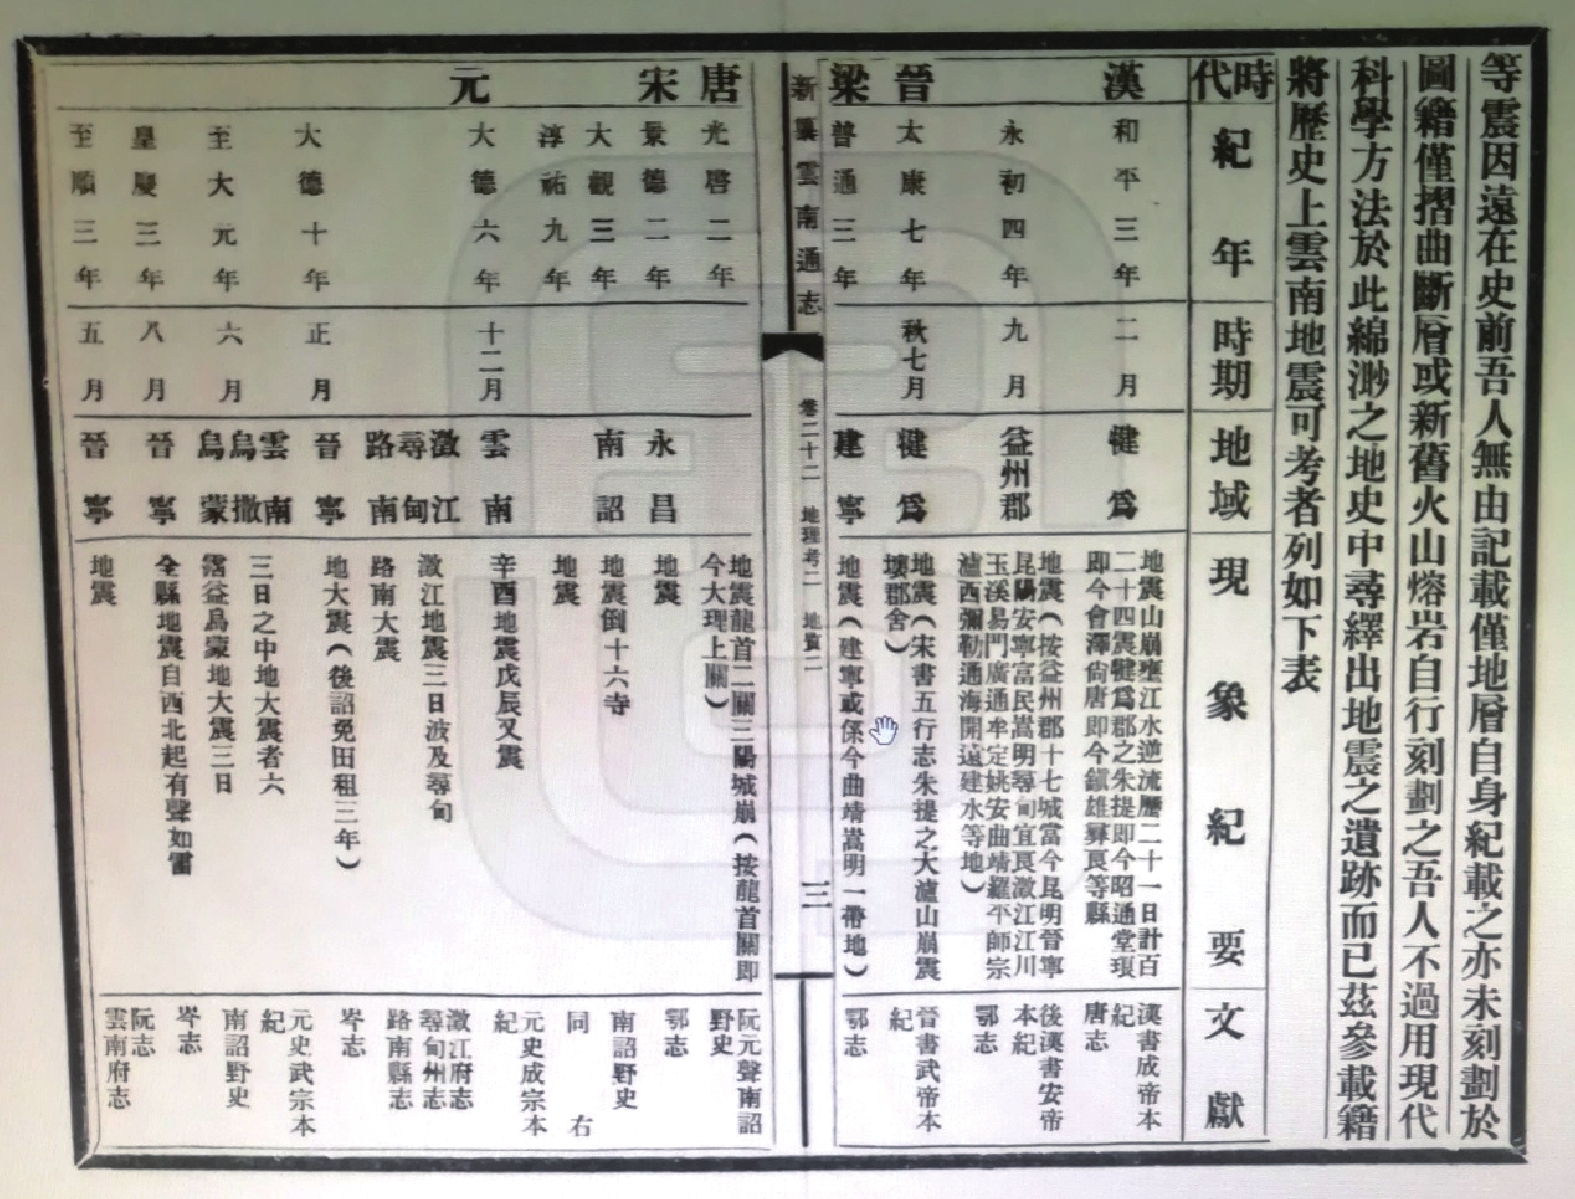 等震因遠在史前吾人無由記載僅地層自身紀載之亦未刻劃於
圖籍僅摺曲斷層或新舊火山熔岩自行刻劃之吾人不過用現代
科學方法於此綿渺之地史中尋繹出地震之遺跡而已茲參載籍
將歷史上雲南地震可考者列如下表
時代
紀年
時期
地域
現象紀要
文獻
漢
和平三年
二月
犍為
地震山崩壅江水逆流歷二十一日計百
二十四震犍為郡之朱提即今昭通堂琅
即今會澤尙唐即今鎭雄彝良等縣
漢書成帝本
紀
唐志
永初四年
九月
益州郡
地震(按益州郡十七城當今昆明晉寧
昆陽安寧富民嵩明尋甸宜良澂江江川
玉溪易門廣通牟定姚安曲靖羅平師宗
瀘西彌勒通海開遠建水等地)
後漢書安帝
本紀
鄂志
晉
太康七年
秋七月
犍為
地震(宋書五行志朱提之大瀘山崩震
壞郡舍)
晉書武帝本
紀
梁
普通三年
建寧
地震(建寧或係今曲靖嵩明一帶地)
鄂志
新纂雲南通志
卷二十二 地理考二 地質二
三
唐
光啓二年
地震龍首二關三陽城崩(按龍首關即
今大理上關)
阮元聲南詔
野史
宋
景德二年
永昌
地震
鄂志
大觀三年
南詔
地震倒十六寺
南詔野史
淳祐九年
地震
同右
元
大德六年
十二月
雲南
辛酉地震戊辰又震
元史成宗本
紀
澂江
尋甸
路南
澂江地震三日波及尋甸
路南大震
澂江府志
尋甸州志
路南縣志
大德十年
正月
晉寧
地大震(後詔免田租三年)
岑志
至大元年
六月
雲南
烏撒
烏蒙
三日之中地大震者六
霑益烏蒙地大震三日
元史武宗本
紀
南詔野史
皇慶三年
八月
晉寧
全縣地震自西北起有聲如雷
岑志
至順三年
五月
晉寧
地震
阮志
雲南府志